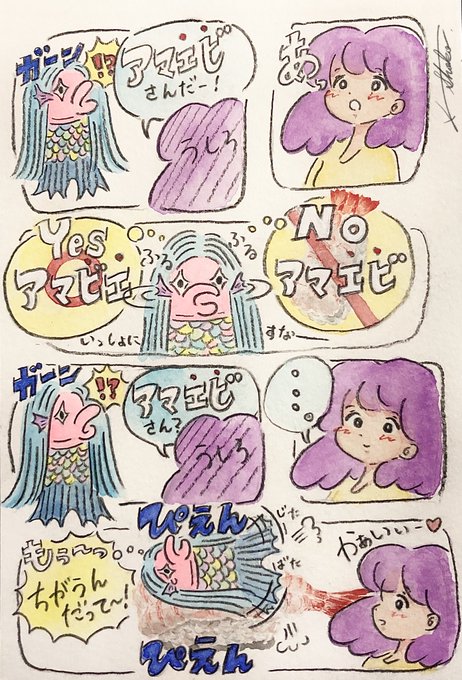 あっ
アマエビ
さんだー!
うしろ
ガーン
!?
No
アマエビ
ふる
ふる
Yes
アマビエ
いっしょに
すなー
・・・
アマエビ
さん?
うしろ
ガーン
!?
かあいいー♡
じた
ばた
ぴえん
ぴえん
もぅ〜っ・・
ちがうん
だって〜!